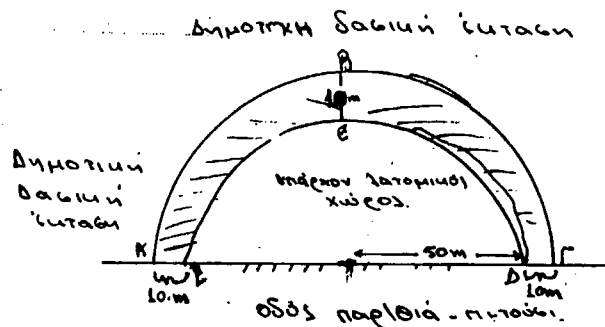 Δημοτική δασική έκταση
10m
ε
Δημοτική
Δασική
έκταση
υπάρχον λατομικός
χώρος.
50m
Κ
Δ
Γ
10m
10m
οδός